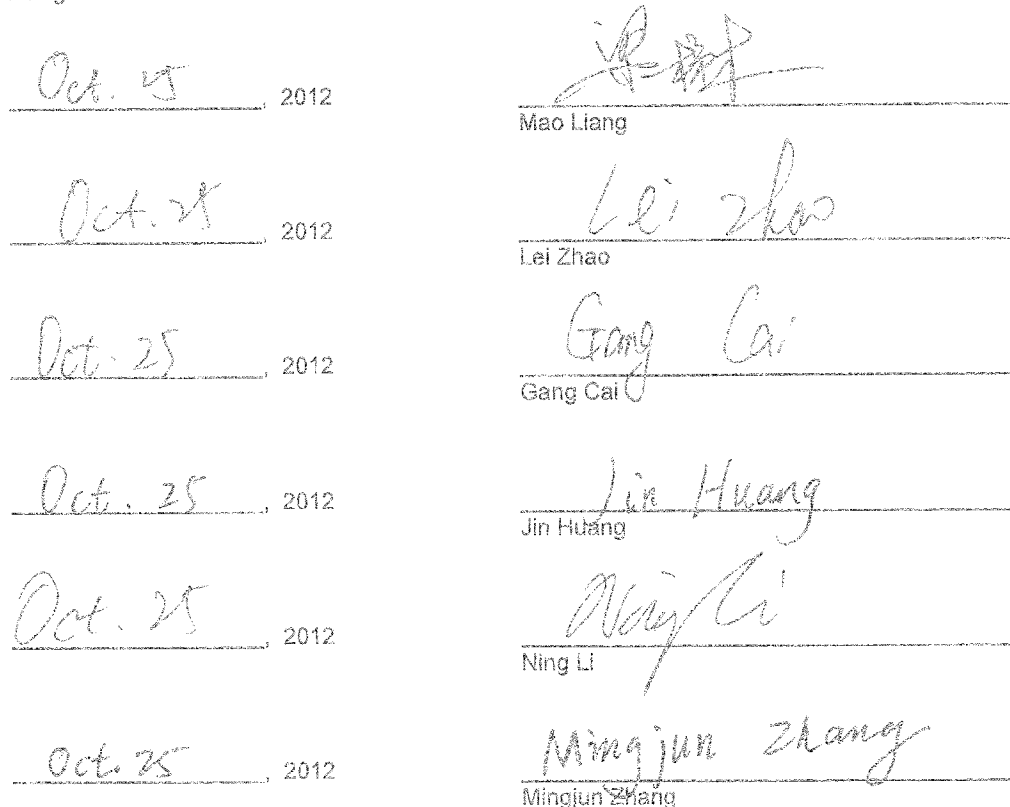 Oct. 25, 2012
梁
Mao Liang
Oct. 25, 2012
Lei Zhao
Lei Zhao
Oct. 25, 2012
Gang Cai
Gang Cai
Oct. 25, 2012
Jin Huang
Jin Huang
Oct. 25, 2012
Ning Li
Ning Li
Oct. 25, 2012
Mingjun Zhang
Mingjun Zhang